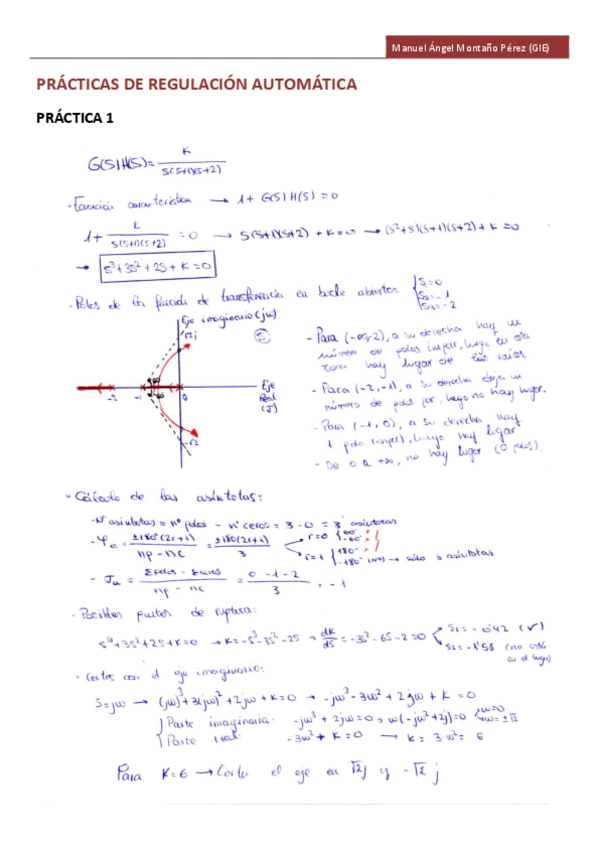 Manuel Ángel Montaño Pérez (GIE)
PRÁCTICAS DE REGULACIÓN AUTOMÁTICA
PRÁCTICA 1
G(s)H(s) = K / S(S+1)(S+2)
- Ecuación característica → 1 + G(S)H(S) = 0
1 + K / S(S+1)(S+2) = 0 → S(S+1)(S+2) + K = 0 → (S²+S)(S+2) + K = 0
→ S³+3S²+2S+K=0
- Polos de la función de transferencia en bucle abierto: S₁=0
S₂=-1
S₃=-2
Eje imaginario (jω)
√2 j
Ⓢ
60
-60
-2 -1 0
Eje
Real
(σ)
-√2
- Para (-∞,-2), a su derecha hay un
número de polos impar, luego en esta
zona hay lugar de las raíces.
- Para (-2,-1), a su derecha deja un
número de polos par, luego no hay lugar.
- Para (-1, 0), a su derecha hay
1 polo (impar), luego hay lugar
- De 0 a +∞, no hay lugar (0 polos).
- Cálculo de las asíntotas:
- Nº asíntotas = nº polos - nº ceros = 3 - 0 = 3 asíntotas
- φₐ = ±180°(2r+1) / np - nc = ±180°(2r+1) / 3 → r=0 60° -60°
r=1 180° -180° → sólo 3 asíntotas
- σₐ = Σpolos - Σceros / np - nc = 0 -1 -2 / 3 = -1
- Posibles puntos de ruptura:
S³+3S²+2S+K=0 → K=-S³-3S²-2S → dK/dS = -3S²-6S-2=0 S₁=-0'42 (✓)
S₂=-1'58 (no está
en el lugar)
- Cortes con el eje imaginario:
S=jω → (jω)³+3(jω)²+2jω+K=0 → -jω³ - 3ω² + 2jω + K = 0
Parte imaginaria: -jω³ + 2jω = 0, ω(-jω²+2j)=0 ω=0 ω=±√2
Parte real: -3ω² + K = 0 → K = 3·ω² = 6
Para K=6 → Corta el eje en √2 j y -√2 j